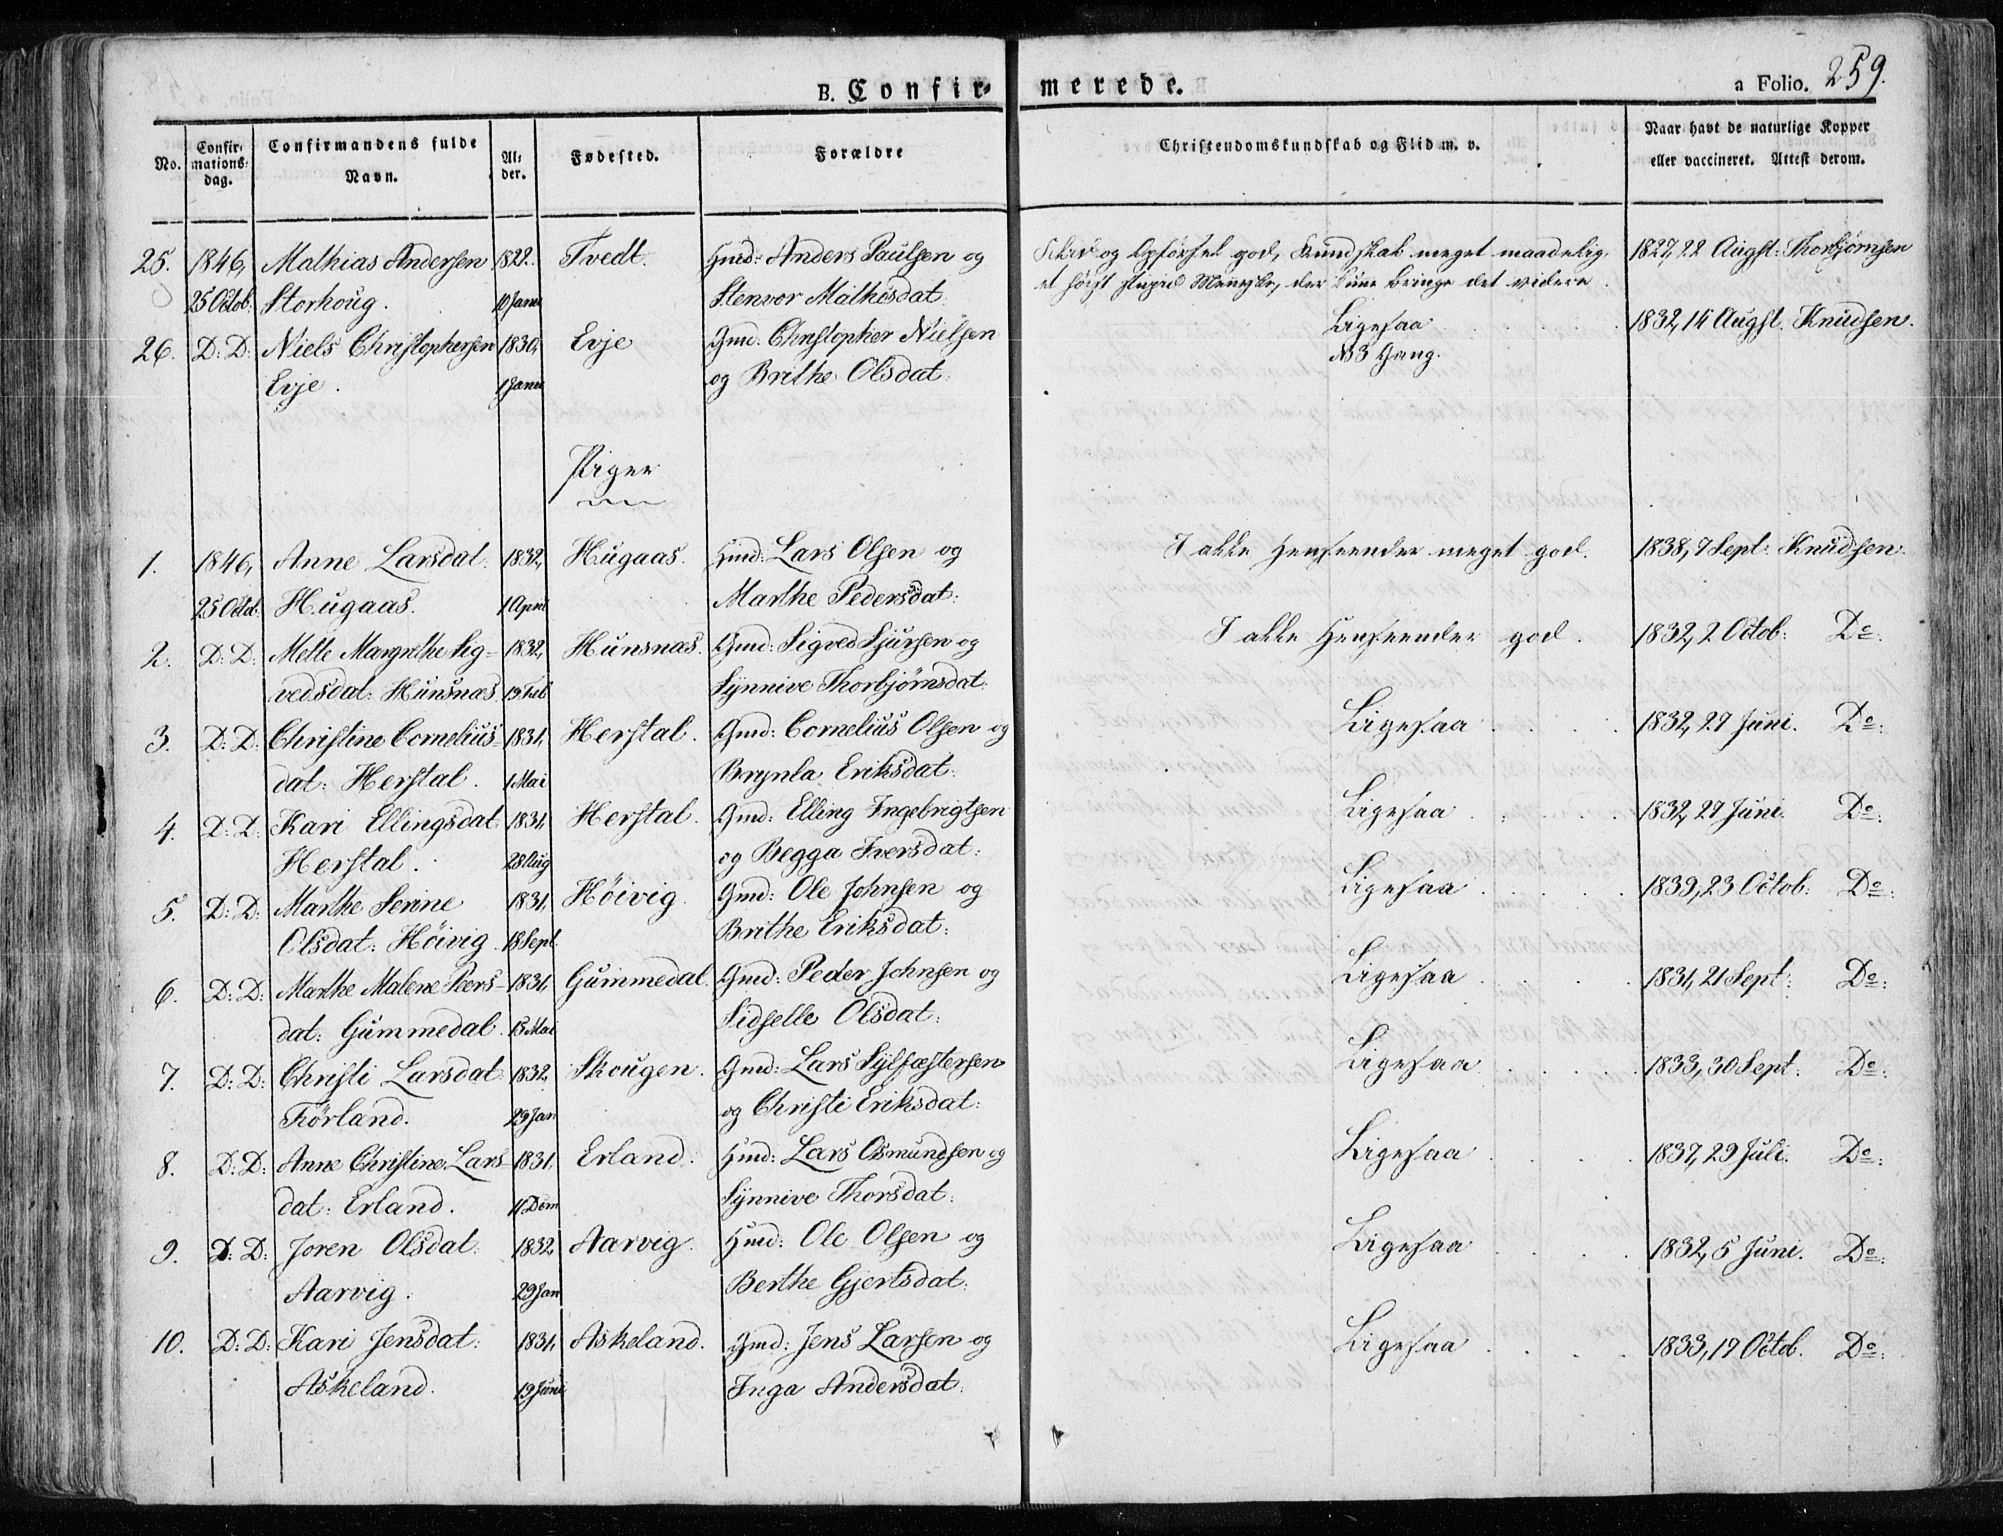 B. Confirmerede.
a Folio. 259.
No. Confirmations-dag. Confirmandens fulde Navn. Alder. Fødested. Forældre Christendomskundskab og Flid m. v. Naar havt de naturlige Kopper eller vaccineret. Attest derom.
25. 1846, Mathias Andersen 1822. Tvedt. Gmd: Anders Paulsen og og Opførsel god, Kundskab meget maadelig, 1827, 22 Augst: Thorbjørnsen
25 Octob: Storhoug. 10 Janu Stenvor Mathisdat: et høist stupid Menneske, der kunne bringe det videre.
26. D: D: Niels Christophersen 1830, Evje Gmd: Christopher Nielsen Ligesaa 1832, 14 Augst. Knudsen.
Evje. 1 Janu og Brithe Olsdat: N3 Gang.
Piger
1. 1846, Anne Larsdat: 1832, Hugaas. Gmd: Lars Olsen og I alle Henseender meget god. 1838, 7 Sept: Knudsen.
25 Octob. Hugaas. 1 April Marthe Pedersdat:
2. D: D: Mette Margrethe Sig- 1832, Hunsnæs. Gmd: Sigved Sjursen og I alle Henseender god. 1832, 2 Octob: Do:
vedsdat: Hunsnæs. 19 Feb Synnive Thorbjørnsdat:
3. D: D: Christine Cornelius- 1831, Herstal. Gmd: Cornelius Olsen og Ligesaa 1832, 27 Juni. Do:
dat: Herstal. 1 Mai Brynla Eriksdat:
4. D: D: Kari Ellingsdat: 1831, Herstal. Gmd: Elling Ingebrigtsen Ligesaa 1832, 27 Juni. Do:
Herstal. 28 Aug og Begga Iversdat:
5. D: D: Marthe Serine 1831, Høivig. Gmd: Ole Johnsen og Ligesaa 1839, 23 Octob: Do:
Olsdat: Høivig. 18 Sept. Brithe Eriksdat:
6. D: D: Marthe Malene Peers- 1831, Gummedal. Gmd: Peder Johnsen og Ligesaa 1831, 21 Sept: Do:
dat: Gummedal. 15 Mai Sidselle Olsdat:
7. D: D: Christi Larsdat: 1832, Skougen. Gmd: Lars Sylfæstersen Ligesaa 1833, 30 Sept: Do:
Førland. 29 Jan og Christi Eriksdat:
8. D: D: Anne Christine Lars- 1831, Erland. Gmd: Lars Osmundsen og Ligesaa 1837, 29 Juli. Do:
dat: Erland. Synnive Thorsdat:
9. D: D: Joren Olsdat: 1832, Aarvig. Gmd: Ole Olsen og Ligesaa 1832, 5 Juni. Do:
Aarvig. 29 Jan Berthe Gjertsdat:
10. D: D: Kari Jensdat: 1831, Askeland. Gmd: Jens Larsen og Ligesaa 1833, 19 Octob. Do:
Askeland. 19 Juni Inga Andersdat: